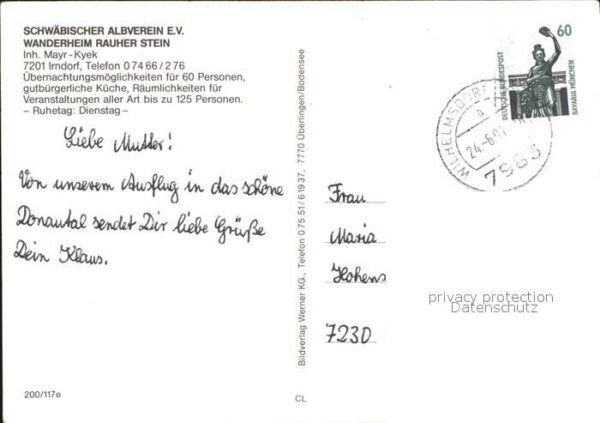 SCHWÄBISCHER ALBVEREIN E.V.
WANDERHEIM RAUHER STEIN
Inh. Mayr-Kyek
7201 Irndorf, Telefon 0 74 66 / 2 76
Übernachtungsmöglichkeiten für 60 Personen,
gutbürgerliche Küche, Räumlichkeiten für
Veranstaltungen aller Art bis zu 125 Personen.
– Ruhetag: Dienstag –
Liebe Mutter!
Von unserem Ausflug in das schöne
Donautal sendet Dir liebe Grüße
Dein Klaus.
200/117e
Bildverlag Werner KG., Telefon 0 75 51 / 6 19 37, 7770 Überlingen/Bodensee
CL
60
DEUTSCHE BUNDESPOST
BAVARIA MÜNCHEN
WILHELMSDORF
a
24.-6.9
7983
Frau
Maria
Hohens
7230
privacy protection
Datenschutz